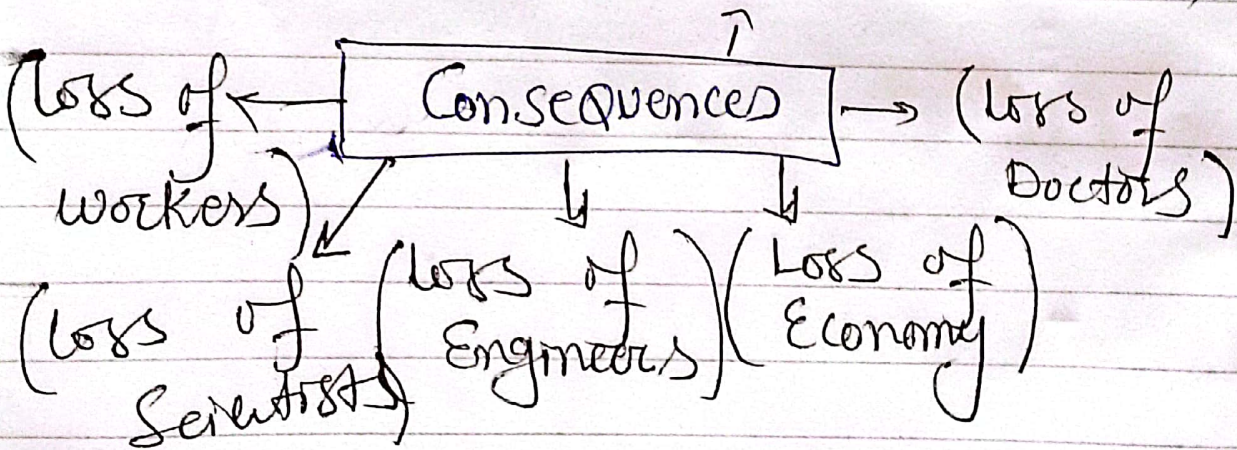 ConseQuences
(Loss of
workers)
(Loss of
Doctors)
(Loss of
Scientists)
(Loss of
Engineers)
(Loss of
Economy)